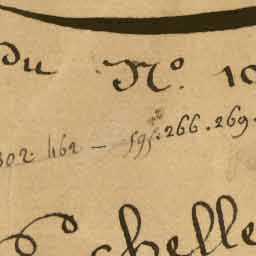 Du N.º 10
302. 462 — 595. 266. 269.
Echelle